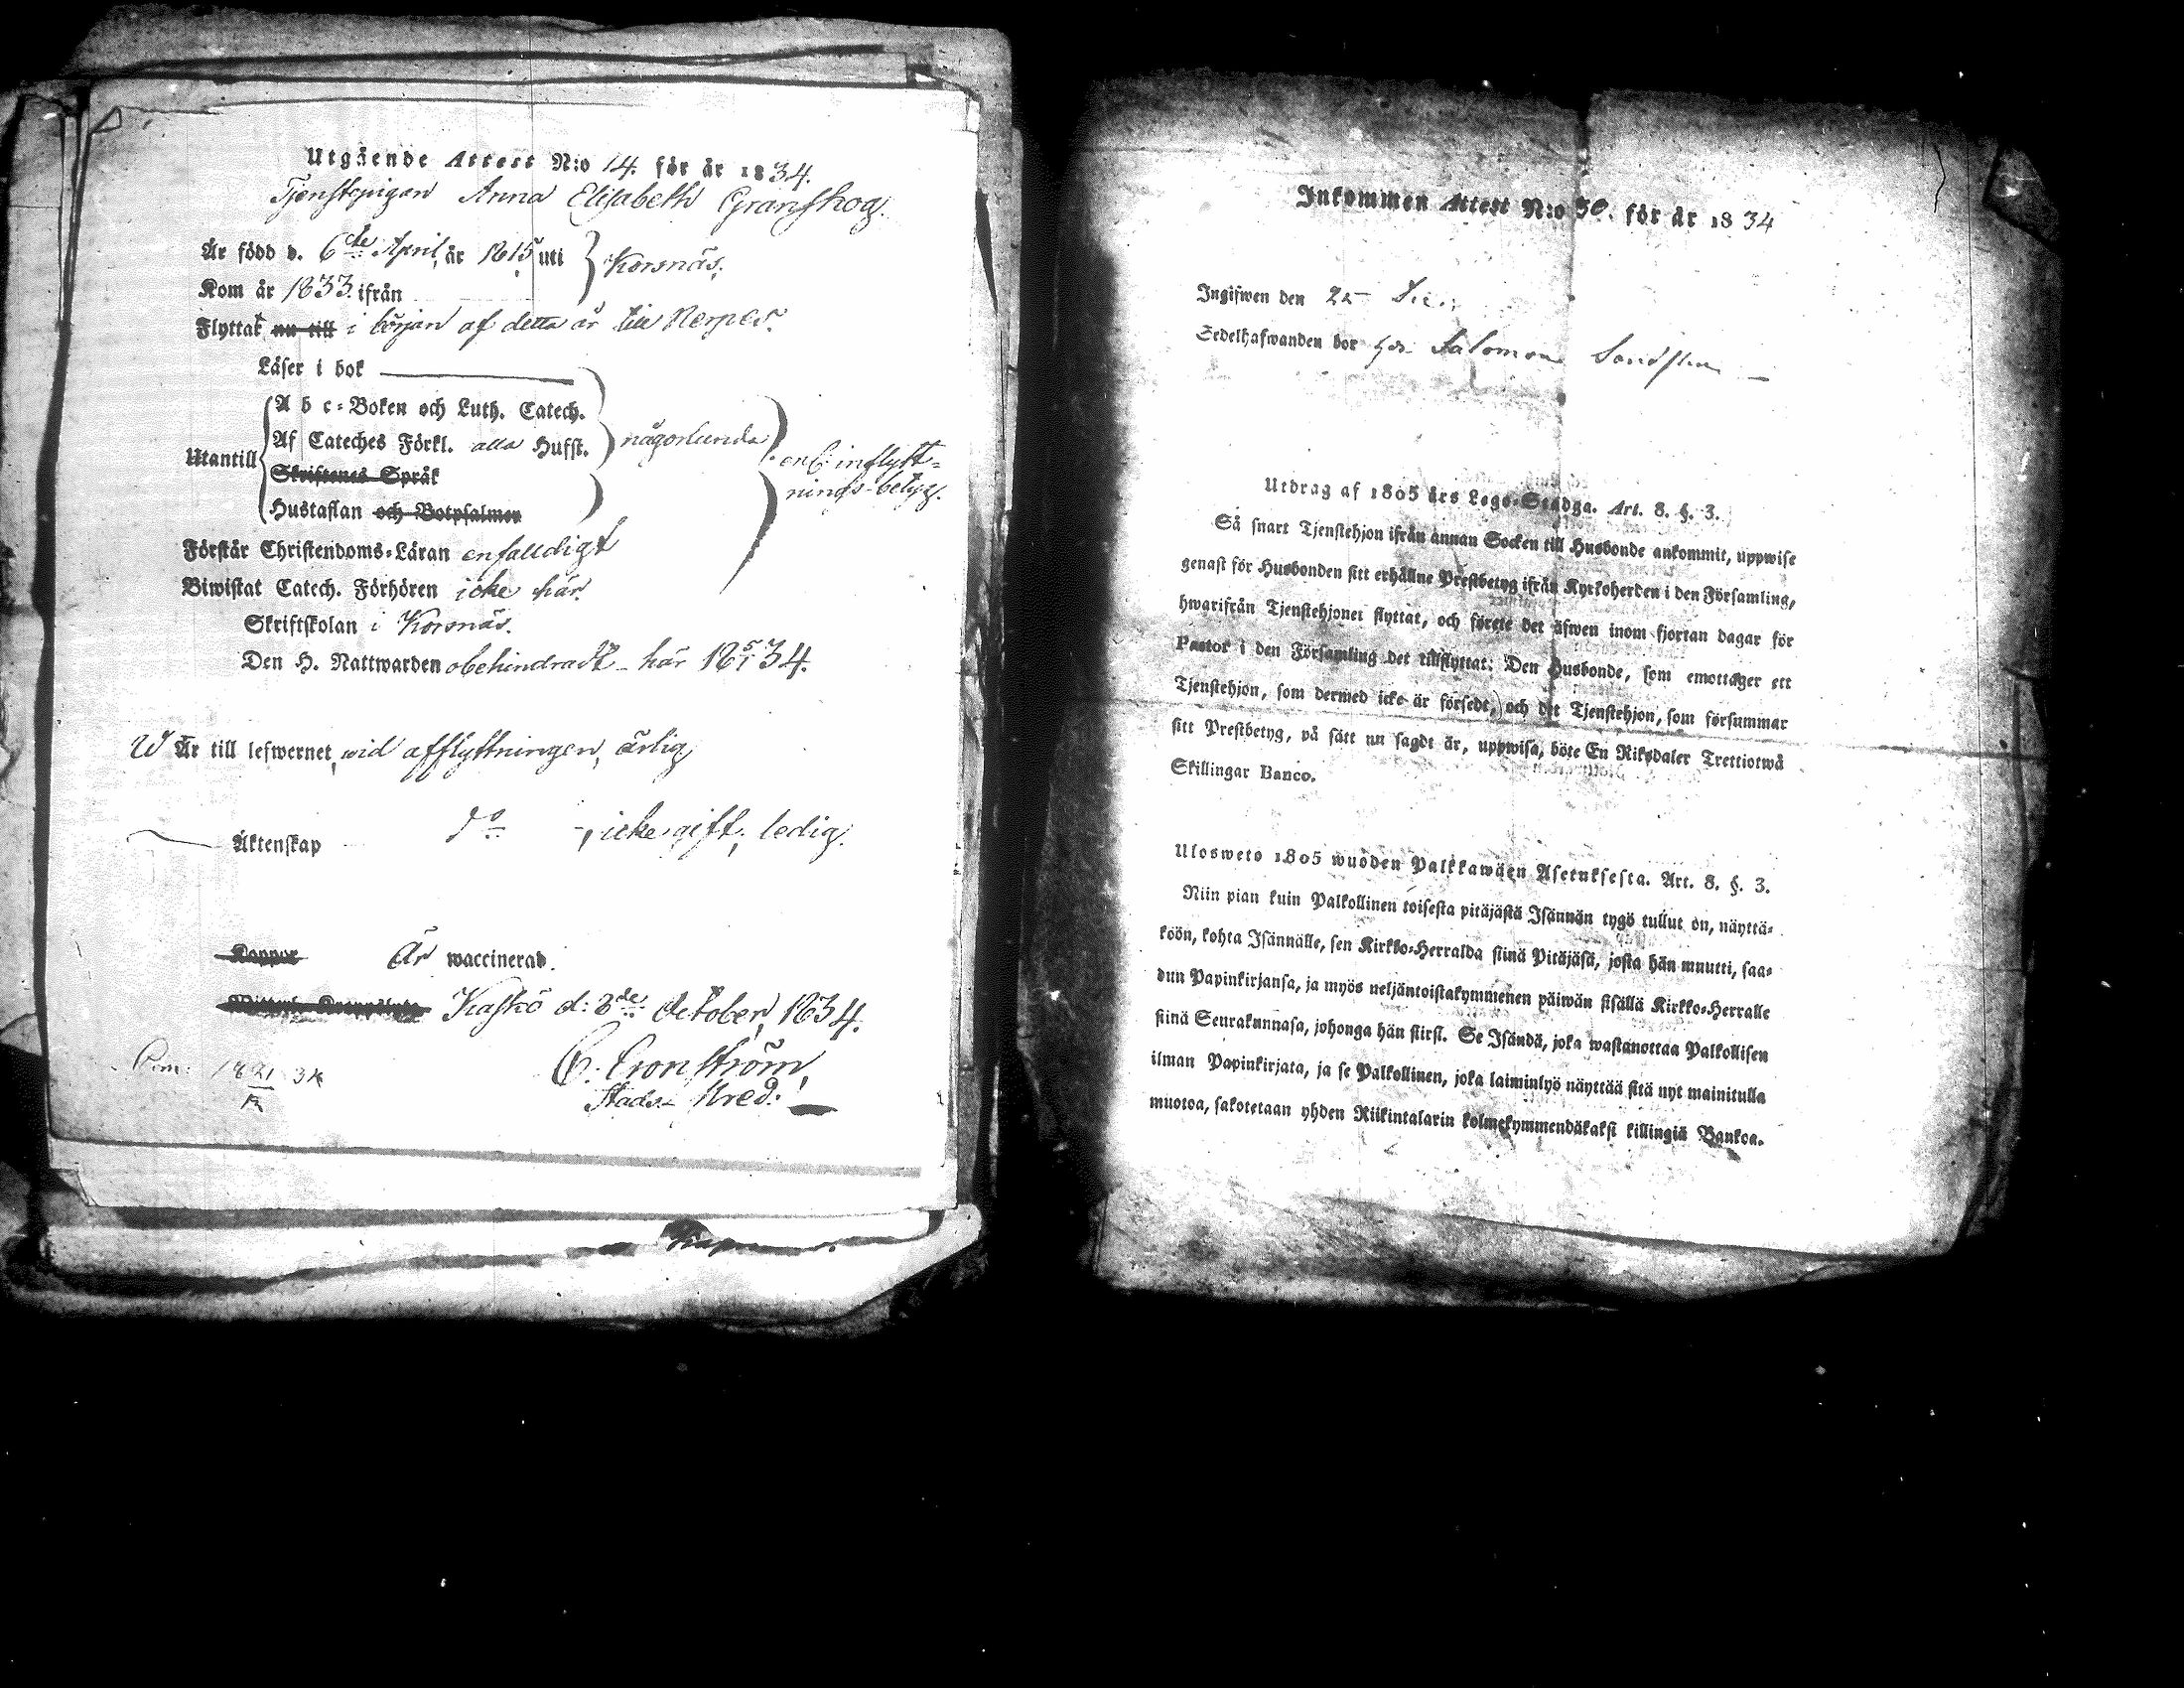 Utgående Attest N:o 14. för år 1834.
Tjenstepigan Anna Elisabeth Granskog.
Är född d. 6te April, år 1815 uti } Korsnäs.
Kom år 1833. ifrån
Flyttat nu till i början af detta år till Nerpes.
Läser i bok
A b c-Boken och Luth. Catech.
Af Cateches Förkl. alla Hufst. någorlunda
Utantill
enl. inflytt-
nings-betyg.
Skriftenes Språk
Hustaflan och Botpsalmer
Förstår Christendoms-Läran enfaldigt
Biwistat Catech. Förhören icke här.
Skriftskolan i Korsnäs.
Den H. Nattwarden obehindradt - här 18 5/1 34.
W Är till lefwernet, wid afflyttningen, ärlig
Äktenskap do -, icke gift, ledig.
Koppor Är waccinerad.
Kaskö d: 3de October, 1834.
C. Cronström,
Stads- Pred.
18 21/12 34
Inkommen Attest N:o 30. för år 1834
Ingifwen den 22
Sedelhafwanden bor hos Salomon
Utdrag af 1805 års Lego-Stadga. Art. 8. §. 3.
Så snart Tjenstehjon ifrån annan Socken till Husbonde ankommit, uppwise
genast för Husbonden sitt erhållne Prestbetyg ifrån Kyrkoherden i den Församling,
hwarifrån Tjenstehjonet flyttat, och förete det äfwen inom fjortan dagar för
Pastor i den Församling det tillflyttat: Den Husbonde, som emottager ett
Tjenstehjon, som dermed icke är försedt, och det Tjenstehjon, som försummar
sitt Prestbetyg, på sätt nu sagdt är, uppwisa, böte En Riksdaler Trettiotwå
Skillingar Banco.
Ulosweto 1805 wuoden Palkkawäen Asetuksesta. Art. 8. §. 3.
Niin pian kuin Palkollinen toisesta pitäjästä Isännän tygö tullut on, näyttä-
köön, kohta Isännälle, sen Kirkko-Herralda siinä Pitäjäsä, josta hän muutti, saa-
dun Papinkirjansa, ja myös neljäntoistakymmenen päiwän sisällä Kirkko-Herralle
siinä Seurakunnasa, johonga hän siirsi. Se Isändä, joka wastanottaa Palkollisen
ilman Papinkirjata, ja se Palkollinen, joka laiminlyö näyttää sitä nyt mainitulla
muotoa, sakotetaan yhden Riikintalarin kolmekymmendäkaksi killingiä Bankoa.